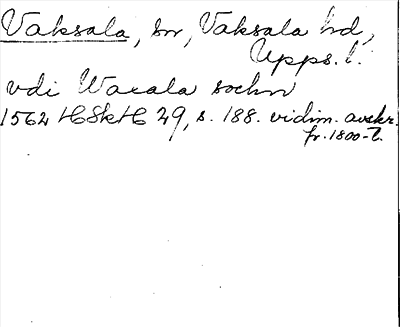 Vaksala, sn, Vaksala hd,
Upps. l.
vdi Waxala sochn
1562 HSkH 29, s. 188. vidim. avskr.
fr. 1800-t.